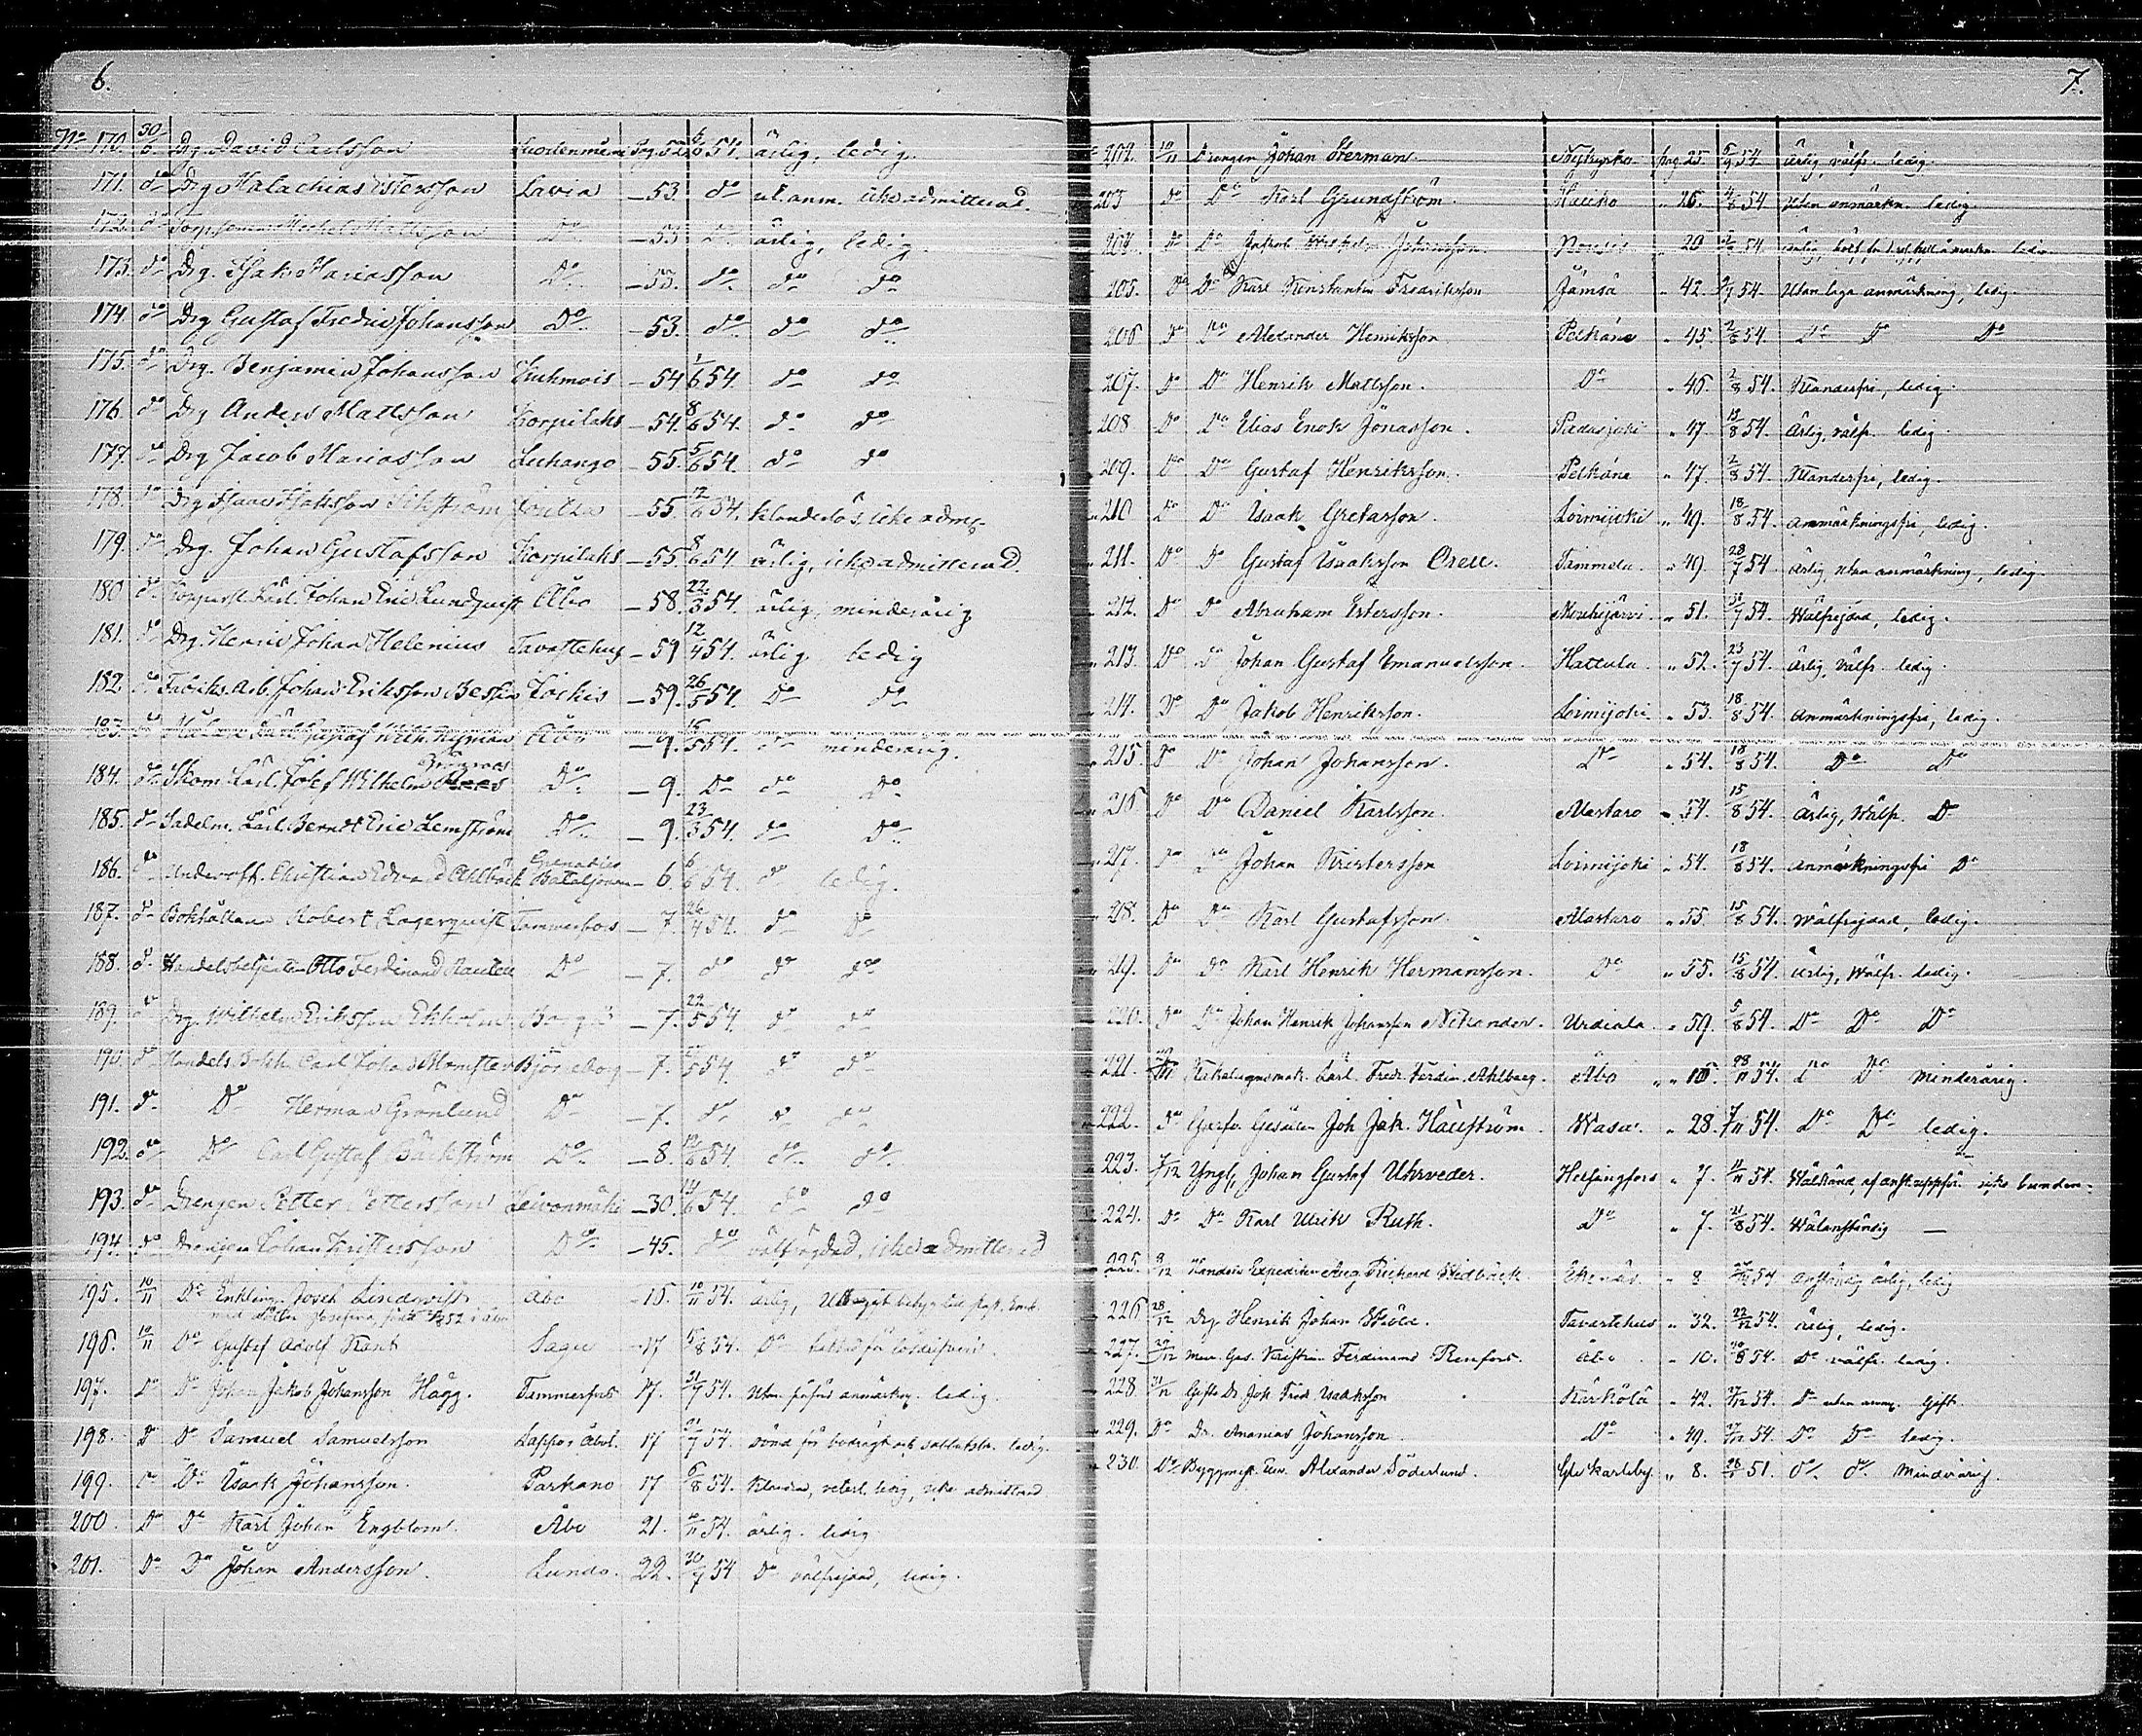 6.
No 170. 30/6. Drg. David Carlsson Suodenniemi Pag. 52 6/6 54. ärlig, ledig.
171. do Drg Malachias Istersson Lavia — 53. do ut. anm. icke admitterad.
172. do Torpsonen Michel Mattsson Do — 53 Do ärlig, ledig.
173. do Drg. Isak Mariasson Do — 53. do do do
174. do Drg Gustaf Fredric Johansson Do — 53. do do do
175. do Drg. Benjamin Johansson Kuhmois — 54 1/6 54. do do
176. do Drg Anders Mattsson Korpilaks — 54. 8/6 54. do do
177. do Drg Jacob Mariasson Luhango — 55. 5/6 54. do do
178. do Drg Isaac Isaksson — 55. 12/6 54. klanderlös, icke adm.
179. do Drg. Johan Gustafsson Korpilaks — 55. 8/6 54 ärlig, icke admitterad.
180 do Lärl. Johan Eric Lundqvist Åbo — 58. 22/3 54. ärlig, minderårig
181. do Drg. Henric Johan Helenius Tavastehus — 59 12/4 54. ärlig ledig
182. do Fabriks Arb. Johan Eriksson Jockis — 59. 26/5 54. Do do
183. do Målare Lärl. Gustaf Wilh. Nyman Åbo — 9. 16/5 54. do minderårig.
184. do Skom. Lärl. Josef Wilhelm Do — 9. Do do Do
185. do Sadelm. Lärl. Berndt Eric Lemström Do — 9. 23/3 54. do Do
186. do Underoff. Christian Edvard Ahlbäck Grenadier Bataljonen — 6. 6/6 54. do ledig.
187. do Bokhållare Robert Lagerqvist Tammerfors — 7. 26/4 54. do Do
188. do Handelsbetjenten Otto Ferdinand Do — 7. do do do
189. do Drg. Wilhelm Eriksson Ekholm Borgå — 7. 22/5 54. do do
190. do Handels Bokh. Carl Johan Björneborg — 7. 5 54. do do
191. do Do Herman Grönlund Do — 7. do do do
192. do Do Carl Gustaf Bäckström Do — 8. 12/6 54. do do
193. do Drengen Petter Pettersson Leivonmäki — 30. 14/6 54. do do
194. do Drengen Johan Kristersson Do — 45. do välfrejdad, icke admitterad
195. 10/11 Do Enkling Josef Lindqvist Åbo — 15. 10/11 54. ärlig,
med dotter Josefina, född 52 i Åbo
196. 10/11 Do Gustaf Adolf Kant Sagu — 17 8 54. Do
197. Do Do Johan Jakob Johansson Hägg. Tammerfors 17. 31/7 54. Utan anmärkn. ledig.
198. Do Do Samuel Samuelsson Lappo i Åbol. 17 31/7 54. ledig.
199. Do Do Isaak Johansson. Parkano 17 8 54. ledig, icke admitterad
200. Do Do Karl Johan Engblom. Åbo 21. 10/11 54. ärlig. ledig
201. Do Do Johan Andersson. Lundo. 22. 30/7 54 Do välfrejdad, ledig.
7.
202. 10/11 Drengen Johan Sterman. Nykyrko pag 25. 5/9 54. Ärlig, välfr. ledig.
203 Do Do Karl Grundström. Hauho „ 26. 4/8 54. Utan anmärkn. ledig.
204. Do Do Jakob Wilhelm Johansson. Nousis „ 20 54. ärlig, ledig
205. Do Do Karl Konstantin Fredriksson Jämsä „ 42. 7 54. Utan laga anmärkning, ledig
206 Do Do Alexander Henriksson Pelkäne „ 45. 2/8 54. Do Do Do
207. Do Do Henrik Mattsson. Do „ 46. 2/8 54. Klanderfri, ledig.
208 Do Do Elias Enok Jonasson. Padasjoki „ 47 13/8 54. Ärlig, välfr. ledig
209. Do Do Gustaf Henriksson. Pelkäne „ 47. 2/8 54. Klanderfri, ledig.
210 Do Do Isaak Gretasson. Loimijoki „ 49. 18/8 54. Anmärkningsfri, ledig.
211. Do Do Gustaf Isaaksson Orell. Tammela. „ 49. 28/7 54 Ärlig, utan anmärkning, ledig.
212. Do Do Abraham Estersson. Mouhijärvi. „ 51. 31/7 54. Wälfrejdad, ledig.
213. Do Do Johan Gustaf Emanuelsson. Hattula. „ 52. 23/7 54. Ärlig, välfr. ledig
214. Do Do Jakob Henriksson. Loimijoki „ 53. 18/8 54. Anmärkningsfri, ledig.
215. Do Do Johan Johansson. Do „ 54. 18/8 54. Do Do
216 Do Do Daniel Karlsson. Alastaro „ 54. 15/8 54. Ärlig, Wälfr. Do
217. Do Do Johan Kristersson Loimijoki „ 54. 18/8 54. Anmärkningsfri Do
218. Do Do Karl Gustafsson. Alastaro „ 55. 15/8 54. Wälfrejdad, ledig.
219. Do Do Karl Henrik Hermansson. Do „ 55. 15/8 54. Ärlig, Wälfr. ledig.
220. Do Do Johan Henrik Johansson Nikander. Urdiala. „ 59. 5/8 54. Do Do Do
221. 11 Kakelugnsmak. Lärl. Fredr. Ferdin. Ahlberg. Åbo „ 15. 28/11 54. Do Do Minderårig.
222. Do Garfv. Gesällen Joh Jak. Hällström. Wasa. „ 28. 7/11 54. Do Do ledig.
223. 7/12 Yngl. Johan Gustaf Uhrveder. Helsingfors „ 7. 11/11 54. Wälkänd, af anst. uppför. icke bunden.
224. Do Do Karl Ulrik Ruth. Do „ 7. 21/8 54. Wälanständig —
225. 9/12 Handels Expediten Aug. Richard Wedbäck. Ekenäs. „ 8 11 54 Anständig ärlig, ledig
226 28/12 Drg Henrik Johan Sköld. Tavastehus „ 32. 22/12 54. Ärlig, ledig.
227. 29/12 Mur. Ges. Kristian Ferdinand Renfors. Åbo „ 10. 8 54. Do välfr. ledig.
228 31/12 Gifte Dr Joh. Fred. Isaaksson Kärkölä „ 42. 27/12 54. Do utan anm. Gift.
229. Do Dr. Ananias Johansson. Do „ 49. 27/12 54. Do Do ledig.
230. Do Byggmest. Elev. Alexander Söderlund. Gle Karleby. „ 8. 28 51. Do Do Minderårig.